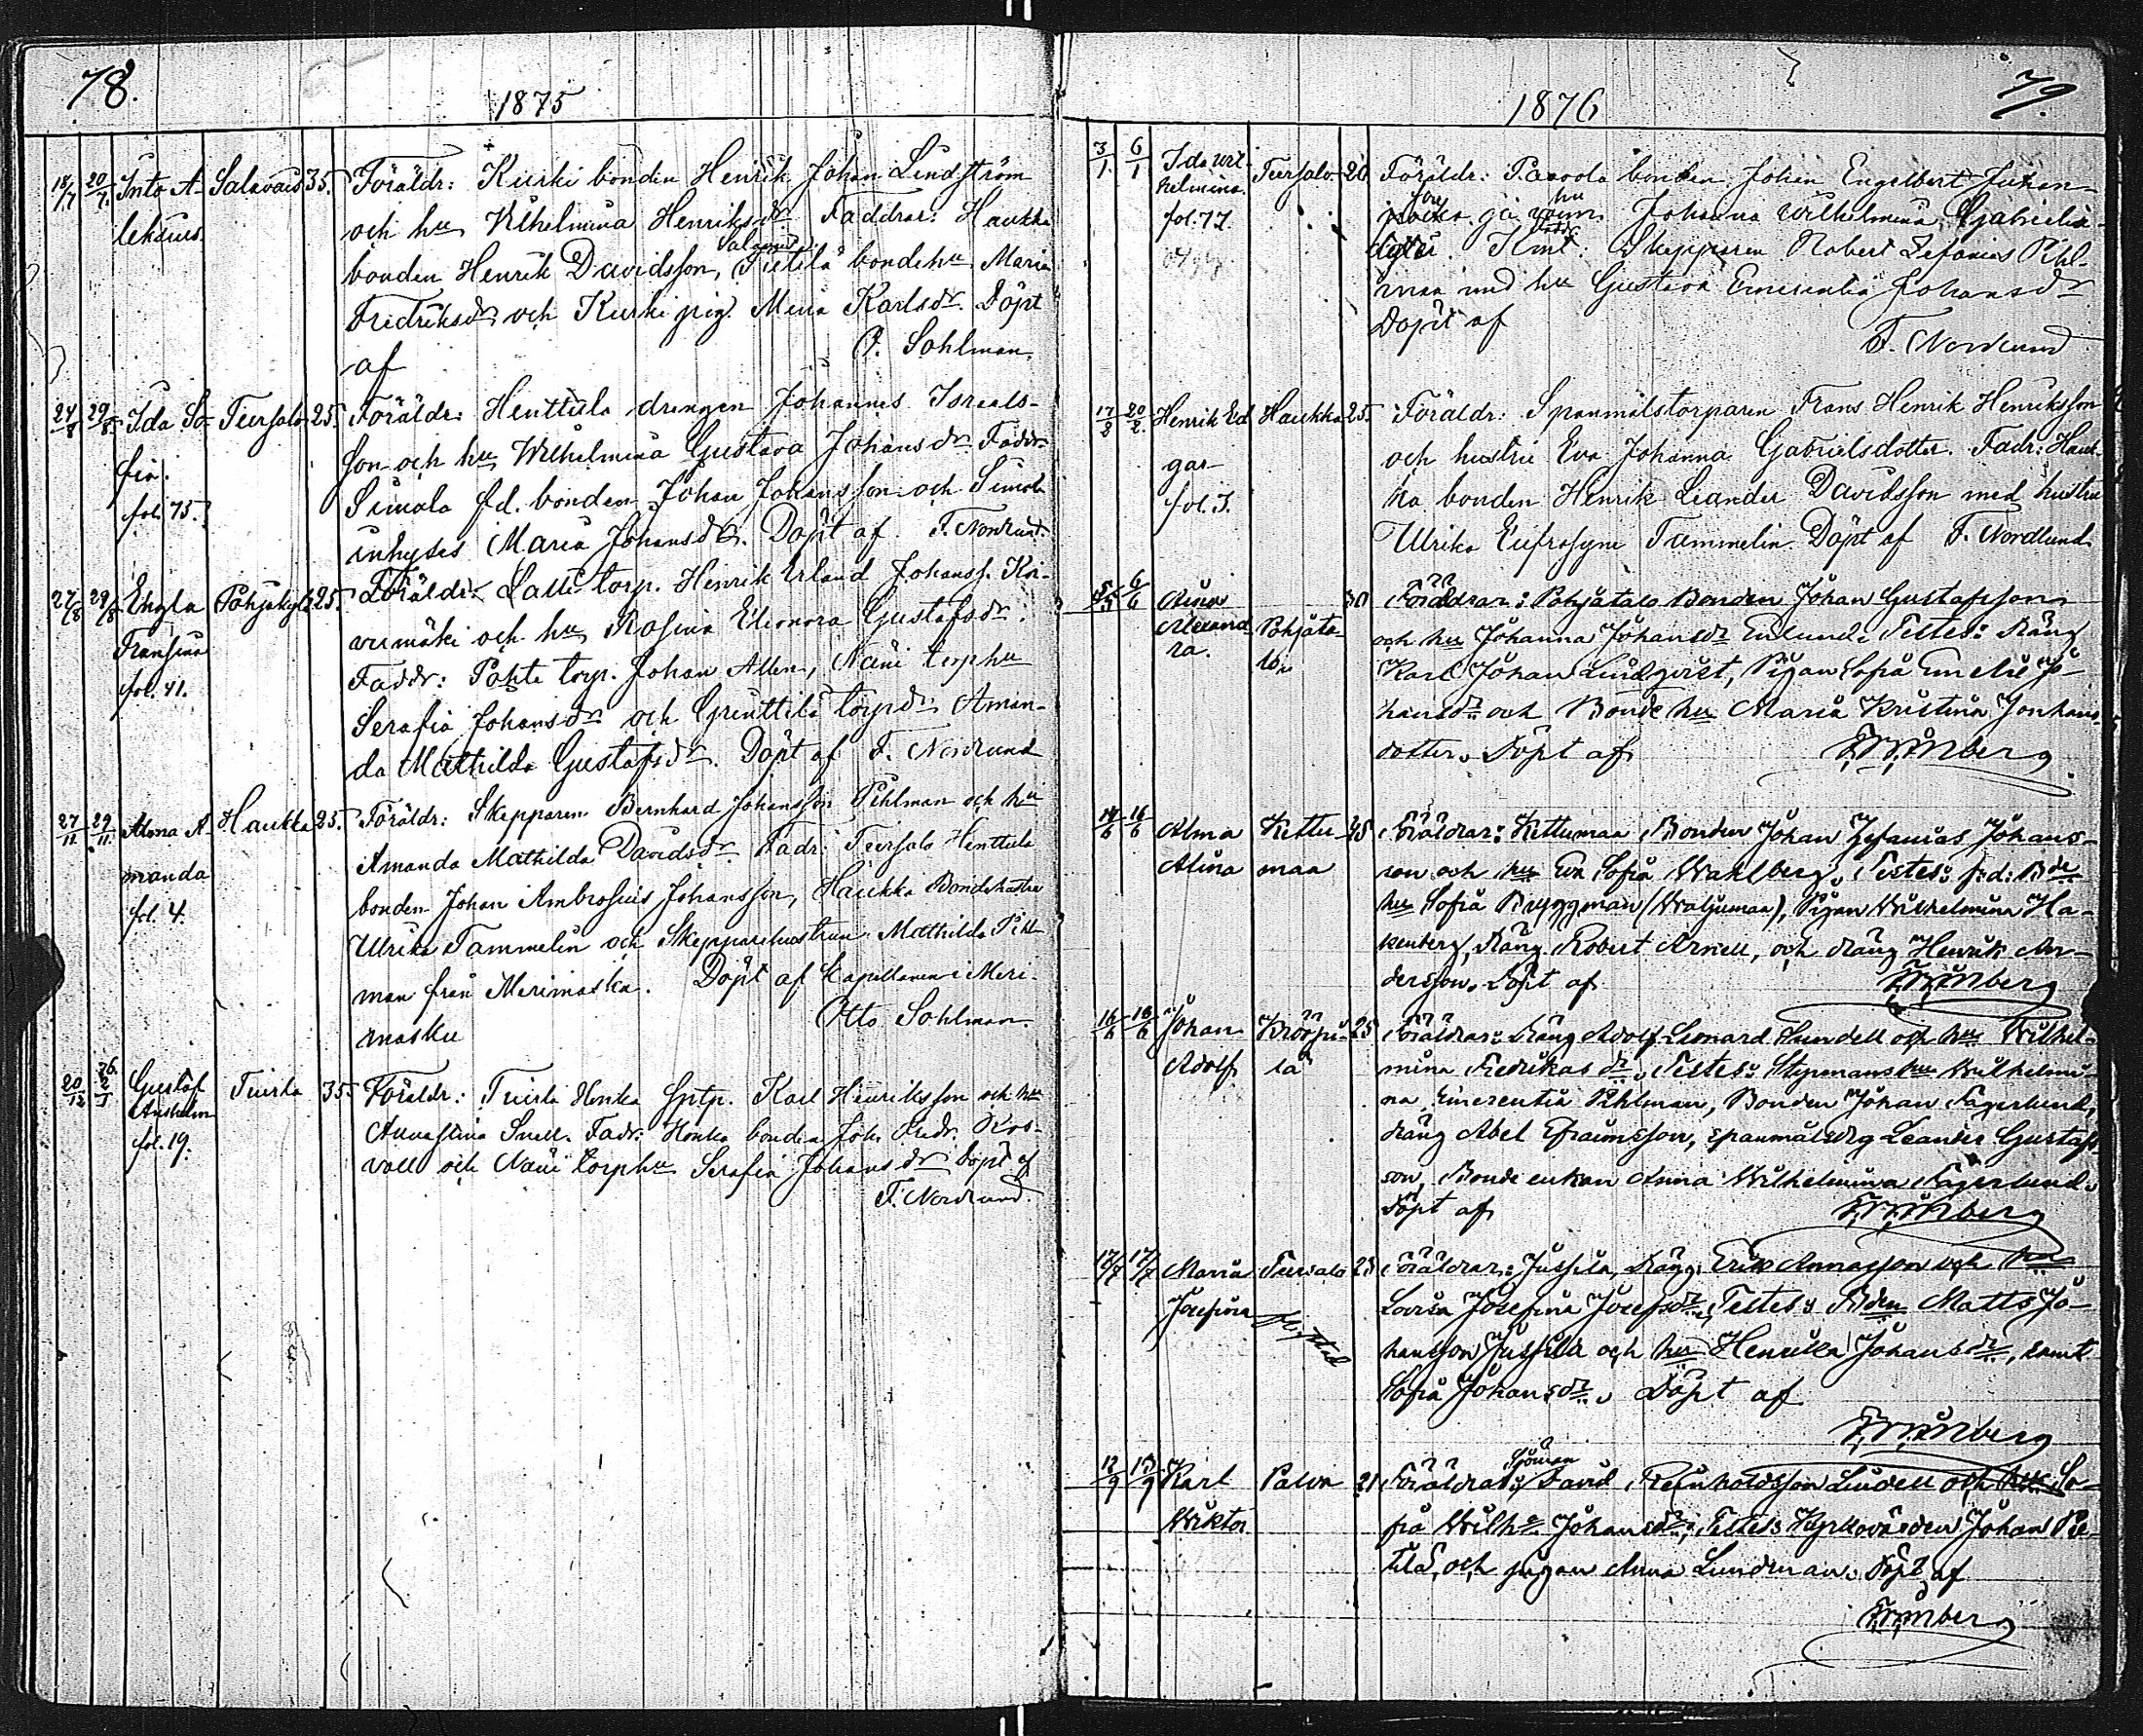 78.
1875
18/7 20/7 Into A- Salavais 35. Föräldr: Kurki bonden Henrik Johan Lindström
leksius. och hu Wilhelmina Henriksdr Faddrar: Haukka
Salavais
bonden Henrik Davidsson, Pietilä bondehu Maria
Fredriksdr och Kurki pig. Mina Karlsdr. Döpt
af O. Sohlman.
24/8 29/8 Ida So- Teersalo 25. Föräldr: Henttula drengen Johannes Israels-
fia. son och hu Wilhelmina Gustava Johansdr. Faddr
fol. 75. Simola fd. bonden Johan Johansson och Simola
inhyses Maria Johansdr. Döpt af F. Nordlund.
27/8 29/8 Engla Pohjakylä 25. Föräldr. Lalli torp. Henrik Erland Johanss. Koi-
Fransina vumäki och hu Rosina Eleonora Gustafsdr:
fol. 41. Faddr: Pahta torp. Johan Allen, Näni torphu
Serafia Johansdr och Gruttila torpdr Aman-
da Mathilda Gustafsdr. Döpt af F. Nordlund
27/11 29/11 Alma A- Haukka 25. Föräldr: Skepparen Bernhard Johansson Pihlman och hu
manda Amanda Mathilda Davidsdr. Fadr: Teersalo Henttula
fol. 4. bonden Johan Ambrosius Johansson, Haukka Bondehustru
Ulrika Tammelin och Skepparehustrun Mathilda Pihl-
man från Merimasku. Döpt af kapellanen i Meri-
masku Otto Sohlman.
20/12 26/1 Gustaf Tuirla 35. Föräldr: Tuirla Honka sptp. Karl Henriksson och hu
Anshelm Anna Stina Snell. Fadr: Honka bonden Joh. Fredr. Ros-
fol. 19. vall och Näni torphu Serafia Johansdr Döpt af
F. Nordlund
79.
1876
3/1 6/1 Ida Wil- Teersalo 20 Föräldr: Paavola bonden Johan Engelbert Juhan-
helmina. Johanna Wilhelmina Gabrielin
fol. 77. Skepparen Robert Zefanias Pihl-
man med hu Gustava Emerentia Johansdr
Döpt af
F. Nordlund
17/2 20/2 Henrik Ed- Haukka 25. Föräldr: Spanmålstorparen Frans Henrik Henriksson
gar och hustru Eva Johanna Gabrielsdotter. Fadr: Hauk-
fol. 3. ka bonden Henrik Leander Davidsson med hustru
Ulrika Eufrosyne Tammelin. Döpt af F. Nordlund
6/6 Aina Pohjata- 30 Föräldrar: Pohjatalo Bonden Johan Gustafsson
Alexand- lo och hu Johanna Johansdr Enlund. Testes: Dräng
ra. Karl Johan Lindqvist, Pigan Sofia Emelie Jo-
hansdr och Bonde hu Maria Kristina Jonhans-
dotter. Döpt af F. W. Grönberg
14/6 16/6 Alma Kettu- 35 Föräldrar: Kettumaa, Bonden Johan Zefanias Johans-
Alina maa son och hu Eva Sofia Wahlberg. Testes: f.d. Bde
hu Sofia Bryggman (Waljumaa), Pigan Wilhelmina Ha-
kenberg, Dräng Robert Arnell, och dräng Henrik An-
dersson. Döpt af
16/6 18/6 Johan Krööpi- 25 Föräldrar: Dräng Adolf Leonard Sundell och hu Wilhel-
Adolf lä mina Fredrikasdr. Testes: Styrmanshu Wilhelmi-
na Emerentia Pihlman, Bonden Johan Fagerlund,
dräng Abel Efraimsson, spanmålsdrg Leander Gustafs-
son, Bonde enkan Anna Wilhelmina Fagerlund.
Döpt af
17/7 17/7 Maria Teersalo 23 Föräldrar: Jussila, Dräng Erik Annasson och hu
Josefina Lovisa Josefina Josefsdr. Testes: Bden Matts Jo-
hansson Jussila och hu Henrika Johansdr, samt
Sofia Johansdr. Döpt af
Sjöman
12/9 13/9 Karl Palva 21 Föräldrar: David Reinholdsson Lindell och hu So-
Wiktor fia Wilha Johansdr, Testes: Kyrkovärden Johan Pie-
tilä, och pigan Anna Lundman. Döpt af